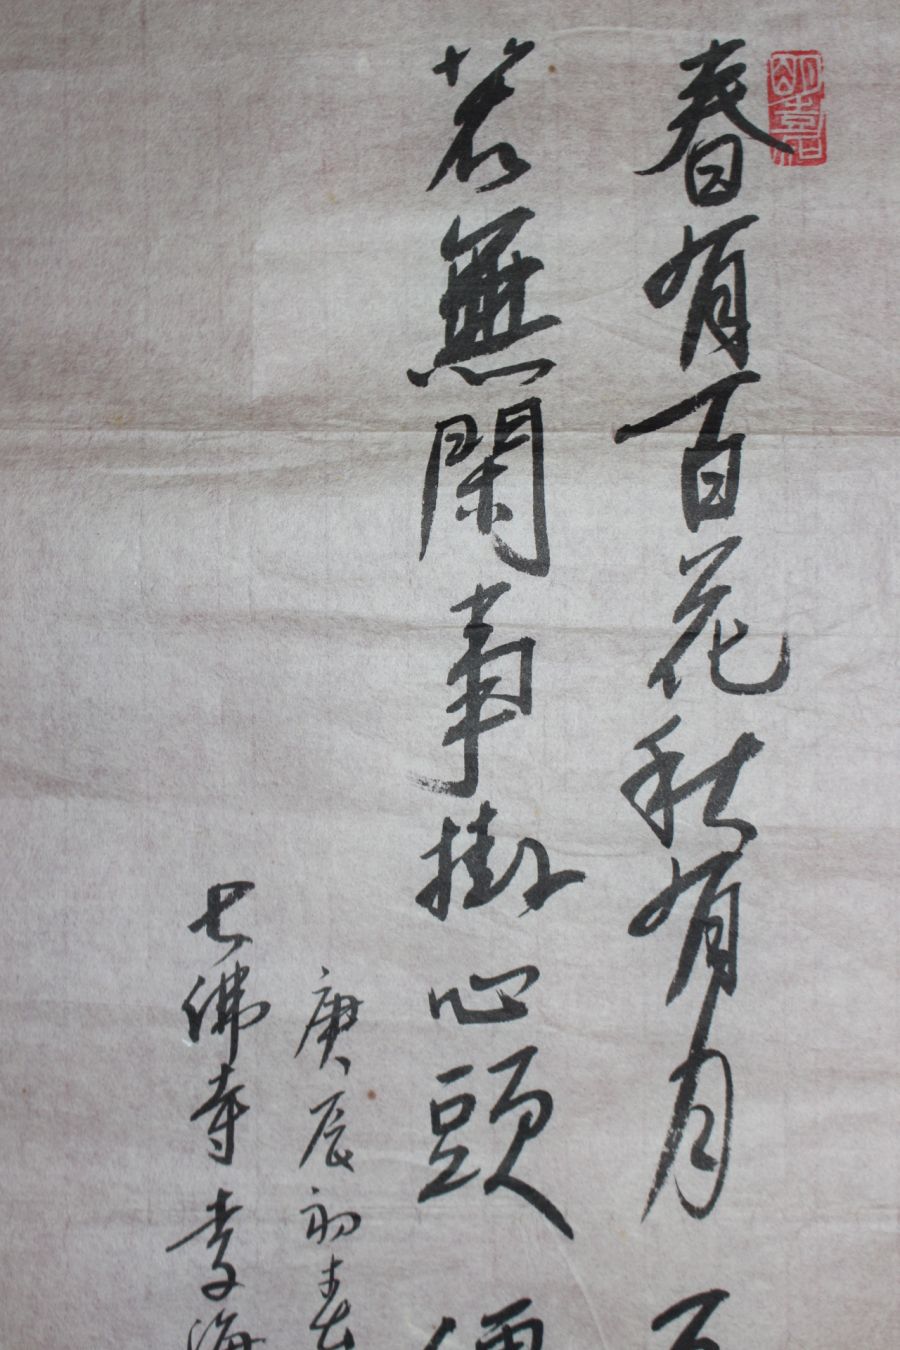 春有百花秋有月
若無閑事掛心頭
庚辰初春
七佛寺李海